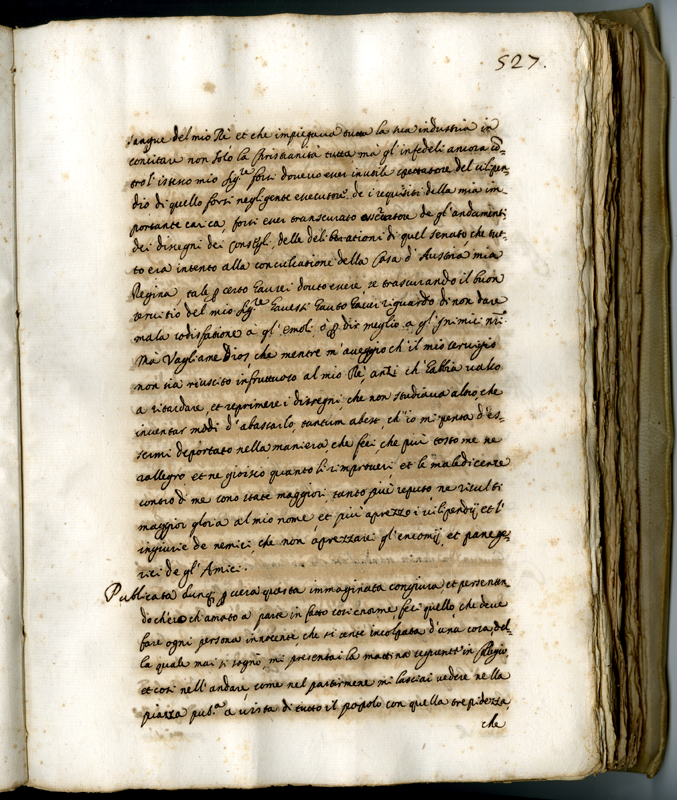 527.
sangue del mio Rè et che impiegava tutta la sua industria in
concitare non solo la Christianità tutta ma gl'infedeli ancora cõ-
tro l'istesso mio Sig.re forsi dovevo esser inutile spettatore del vilipen-
dio di quello forsi negligente essecutore de i requisiti della mia im
portante carica forsi esser transcurato de gl'andamenti
dei disegni dei Consegli, delle deliberationi di quel Senato, che tut-
to era intento alla conciliatione della Casa d'Austria mia
Regina, tale ꝑ certo haurei dovuto essere, se trascurando il buon
servitio del mio Sig.re havessi havuto haver riguardo di non dare
mala sodisfatione à gl'emoli, ò ꝑ dir meglio a gl'Inimici nri.
Mà Vagliame Dios, che mentre m'aveggio ch'il mio servigio
non sia riuscito infruttuoso al mio Rè, anzi ch'habbia valso
a ritardare, et reprimere i dissegni, che non studiava altro che
inventar modi d'abassarlo, tantum abest, ch'io mi penta d'es-
sermi deportato nella maniera, che feci, che più tosto me ne
rallegro, et ne gioisco quanto li rimproveri et le maledicenze
contro di me sono state maggiori, tanto più reputo ne risulti
maggior gloria al mio nome et più aprezzo i vilipendij et l'
ingiurie de nemici che non aprezzarei gl'encomij, et panege-
rici de gl'Amici.
Publicata dunq ꝑ vera questa immaginata congiura, et persuaden
do ch'ero chiamato a parte in fatto così enorme feci quello, che deve
fare ogni persona innocente, che si sente incolpata d'una cosa, del-
la quale mai si sognò, mi presentai la mattina seguente in Collegio,
et così nell'andare, come nel partirmene mi lasciai vedere nella
piazza pub.a a vista di tutto il popolo con quella trepidezza,
che